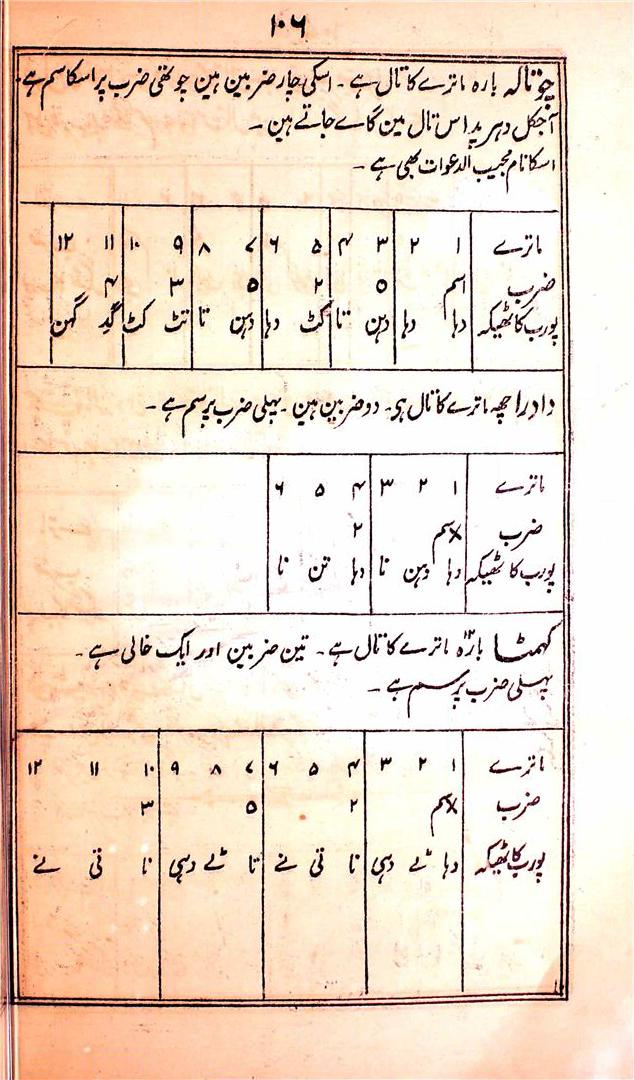 ۱۰۶
چوتالہ بارہ ماترے کا تال ہے ۔ اسکی چار ضربین ہین چوتھی ضرب پر اسکا سم ہے
آجکل دہرپد اس تال مین گاے جاتے ہین ۔
اسکا نام مجیب الدعوات بھی ہے ۔
ماترے ۱ ۲ ۳ ۴ ۵ ۶ ۷ ۸ ۹ ۱۰ ۱۱ ۱۲
ضرب اسم ۵ ۲ ۵ ۳ ۴
پورب کا ٹھیکہ دہا دہا دہن تا کٹ دہا دہن تا تٹ کٹ گد گهن
دادرا چھہ ماترے کا تال ہی۔ دو ضربین ہین ۔ پہلی ضرب پر سم ہے ۔
ماترے ۱ ۲ ۳ ۴ ۵ ۶
ضرب ×سم ۲
پورب کا ٹھیکہ دہا دہن نا دہا تن نا
کہمٹا بارہ ۱۲ ماترے کا تال ہے ۔ تین ضربین اور ایک خالی ہے ۔
پہلی ضرب پر سم ہے ۔
ماترے ۱ ۲ ۳ ۴ ۵ ۶ ۷ ۸ ۹ ۱۰ ۱۱ ۱۲
ضرب ×سم ۲ ۵ ۳
پورب کا ٹھیکہ دہا ٹے دہی نا تی نے تا ٹے دہی نا تی نے